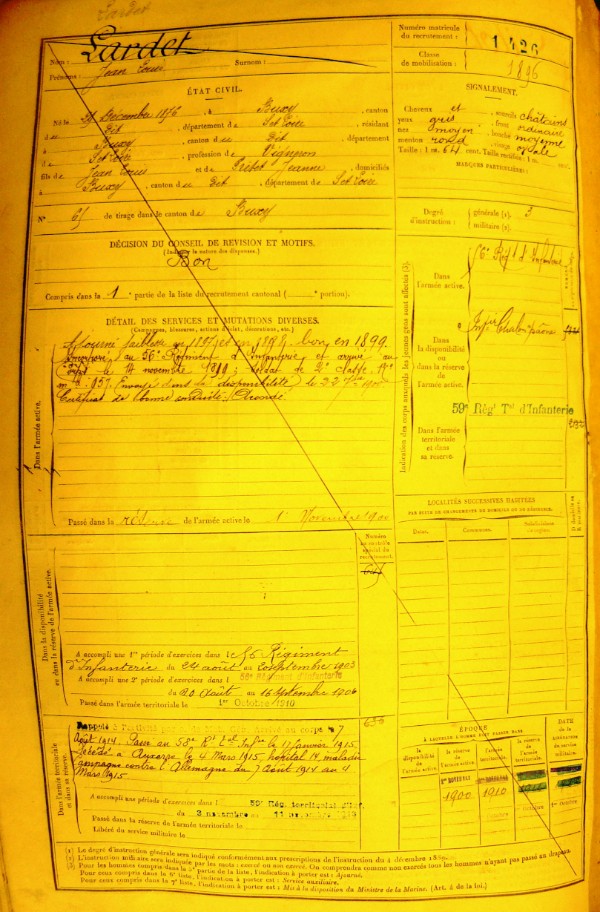 Lardet
Numéro matricule
du recrutement :
1426
Classe
de mobilisation :
1896
Nom : Lardet
Prénoms : Jean Louis Surnom :
ÉTAT CIVIL.
Né le 25 Décembre 1876, à Buxy, canton
du dit, département de S et Loire, résidant
à Buxy, canton du dit, département
de S et Loire, profession de Vigneron
fils de Jean Louis et de Jeanne, domiciliés
à Buxy, canton du dit, département de S et Loire
N° 65 de tirage dans le canton de Buxy
SIGNALEMENT.
Cheveux et sourcils châtains
yeux gris, front ordinaire
nez moyen, bouche moyenne
menton rond, visage ovale
Taille : 1 m. 64 cent. Taille rectifiée : 1 m. cent.
MARQUES PARTICULIÈRES :
Degré
d'instruction :
générale (1). 3
militaire (2).
DÉCISION DU CONSEIL DE REVISION ET MOTIFS.
(Indiquer la nature des dispenses.)
Bon
Compris dans la 1e partie de la liste du recrutement cantonal ( portion).
DÉTAIL DES SERVICES ET MUTATIONS DIVERSES.
(Campagnes, blessures, actions d'éclat, décorations, etc.)
Ajourné faiblesse en 1897 et en 1898, bon en 1899.
au 56e Régiment d'Infanterie et arrivé au
corps le 14 novembre soldat de 2e classe
Envoyé dans la disponibilité le 22
Certificat de bonne conduite : Accordé
Dans l'armée active.
Passé dans la réserve de l'armée active le 1er Novembre 1900
Indication des corps auxquels les jeunes gens sont affectés (3).
Dans
l'armée active.
56e Régt d'Infanterie
Dans
la disponibilité
ou dans
la réserve
de l'armée active.
Infrie Chalon
59e Régt Tal d'Infanterie
Dans l'armée
territoriale
et dans
sa réserve.
LOCALITÉS SUCCESSIVES HABITÉES
PAR SUITE DE CHANGEMENTS DE DOMICILE OU DE RÉSIDENCE.
Dates.
Communes.
Subdivisions
de région.
Numéro
au contrôle
spécial du
recrutement.
Dans la disponibilité
ou dans la réserve de l'armée active.
A accompli une 1re période d'exercices dans l 56 Régiment
d'Infanterie du 24 août au 20 septembre 1903
A accompli une 2e période d'exercices dans l 56e Régiment d'Infanterie
du 20 Août au 16 Septembre 1906
Passé dans l'armée territoriale le 1er Octobre 1910
Dans l'armée territoriale
et dans sa réserve.
Rappelé à l'activité Arrivé au corps le 7
Août 1914. Passé au 58e Rt tal Infie le 17 Janvier 1915
Décédé à Auxerre le 4 Mars 1915, hôpital 14, maladie
Campagne contre l'Allemagne du 7 Août 1914 au 4
Mars 1915
A accompli une période d'exercices dans l 59e Rég. territorial d'Inf.
du 3 novembre au 11 novembre
Passé dans la réserve de l'armée territoriale le
Libéré du service militaire le
ÉPOQUE
À LAQUELLE L'HOMME DOIT PASSER DANS
la disponibilité
de l'armée active.
la réserve
de l'armée active.
l'armée
territoriale.
la réserve
de l'armée
territoriale.
DATE
de la
LIBÉRATION
du service
militaire.
1er NOVEMBRE
1900
1910
(1) Le degré d'instruction générale sera indiqué conformément aux prescriptions de l'instruction du 4 décembre
(2) L'instruction militaire sera indiquée par les mots : exercé ou non exercé. On comprendra comme non exercés tous les hommes n'ayant pas passé au drapeau
(3) Pour les hommes compris dans la 5e partie de la liste, l'indication à porter est : Ajourné.
Pour ceux compris dans la 6e liste, l'indication à porter est : Service auxiliaire.
Pour ceux compris dans la 7e liste, l'indication à porter est : Mis à la disposition du Ministre de la Marine. (Art. 4 de la loi.)